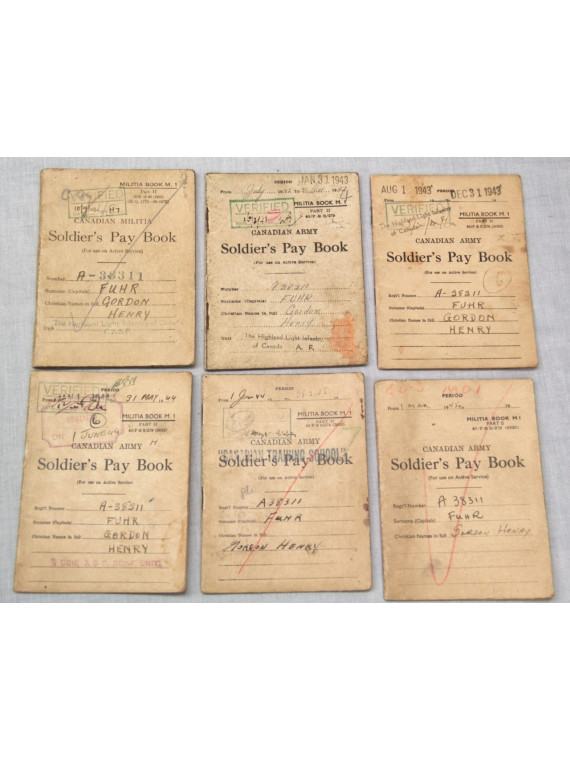 VERIFIED
MILITIA BOOK M. 1
PART II
CANADIAN MILITIA
Soldier's Pay Book
(For use on Active Service)
Number A-38311
Surname (Capitals) FUHR
Christian Names in full GORDON
HENRY
The Highland Light Infantry
Unit
PERIOD JAN 31 1943
From July
VERIFIED
MILITIA BOOK M. 1
PART II
CANADIAN ARMY
Soldier's Pay Book
(For use on Active Service)
Number A38311
Surname (Capitals) FUHR
Christian Names in full Gordon
Henry
Unit The Highland Light Infantry
of Canada
AUG 1 1943 PERIOD DEC 31 1943
From
VERIFIED
MILITIA BOOK M. 1
PART II
The Highland Light Infantry
of Canada
CANADIAN ARMY
Soldier's Pay Book
(For use on Active Service)
6
Regt'l Number A-38311
Surname (Capitals) FUHR
Christian Names in full GORDON
HENRY
VERIFIED
PERIOD
31 MAY 44
MILITIA BOOK M. 1
PART II
6
ON 1 JUNE 44
CANADIAN ARMY
Soldier's Pay Book
(For use on Active Service)
Regt'l Number A-38311
Surname (Capitals) FUHR
Christian Names in full GORDON
HENRY
PERIOD
From 1 Jan
MILITIA BOOK M. 1
CANADIAN ARMY
"CANADIAN TRAINING SCHOOL"
Soldier's Pay Book
(For use on Active Service)
Regt'l Number A38311
Surname (Capitals) FUHR
Christian Names in full GORDON HENRY
PERIOD
From 1
MILITIA BOOK M. 1
PART II
CANADIAN ARMY
Soldier's Pay Book
(For use on Active Service)
Regt'l Number A 38311
Surname (Capitals) FUHR
Christian Names in full GORDON HENRY